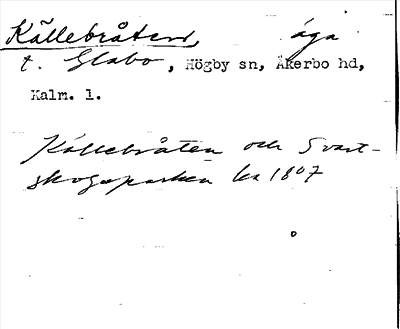 Källebråten, äga
t. Glabo, Högby sn, Åkerbo hd,
Kalm. l.
Källebråten och Svart-
skogsparken lsk 1807